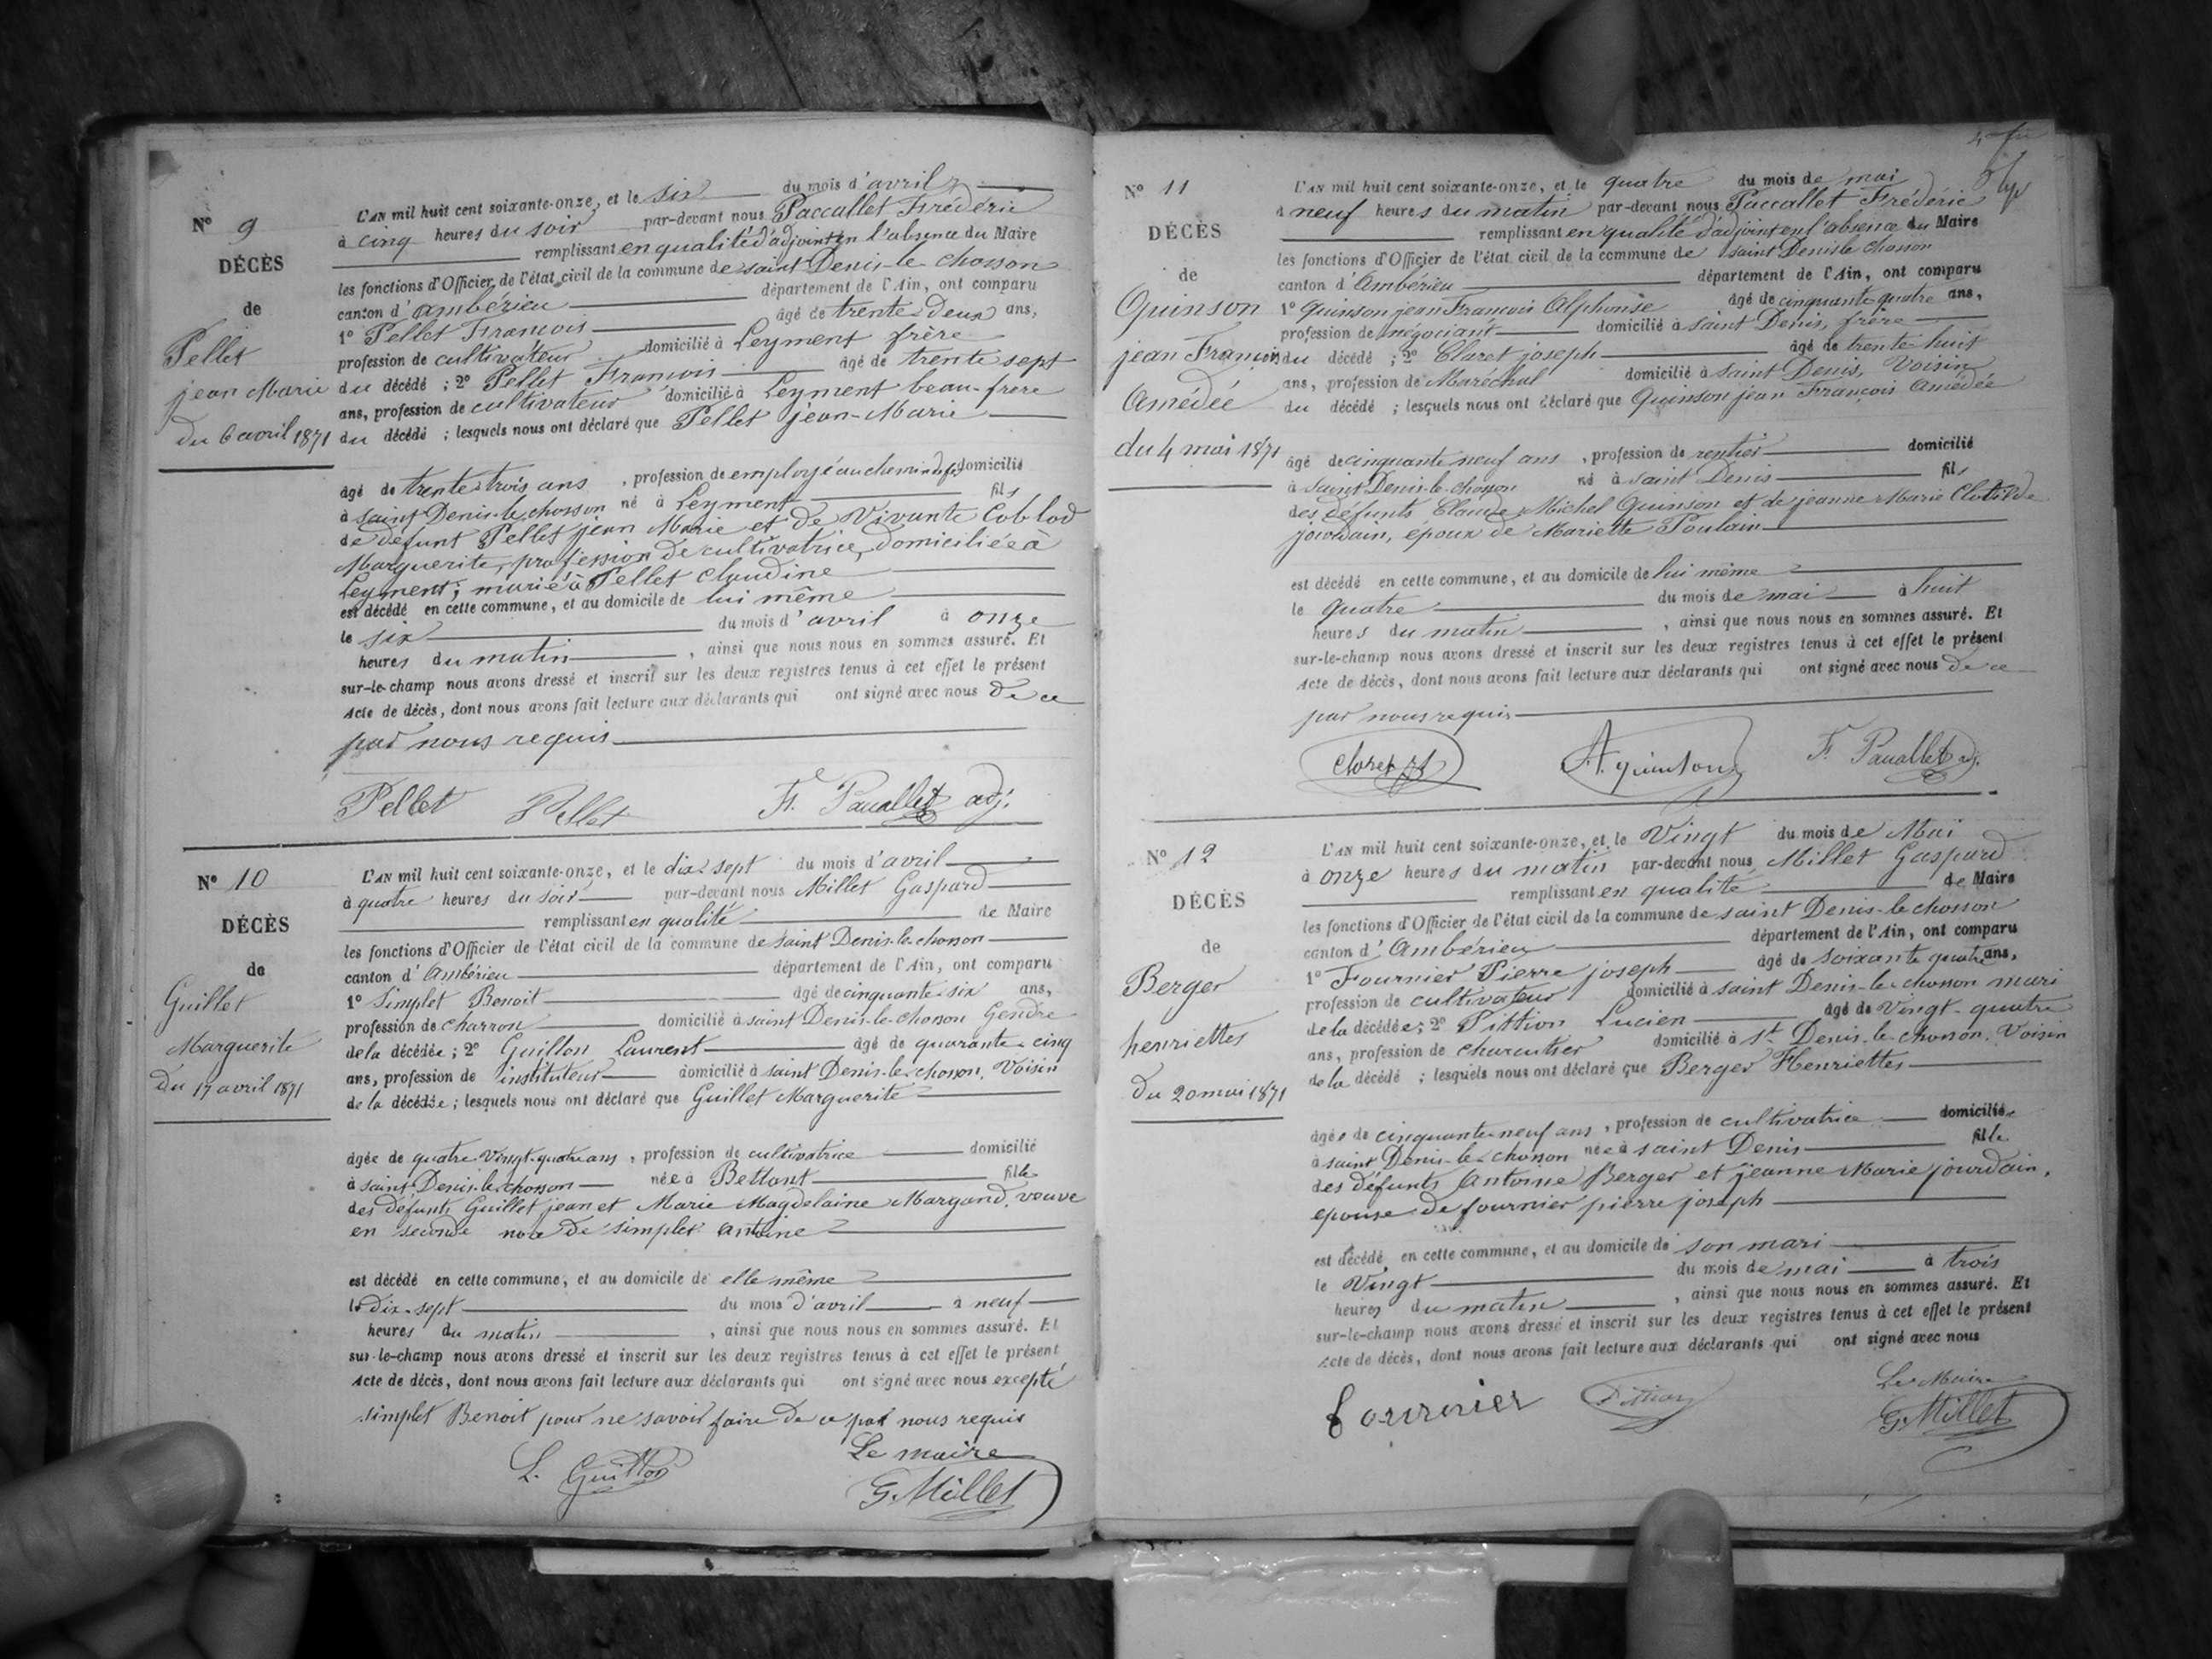 Nº 9
DÉCÈS
de
Pellet
jean Marie
du 6 avril 1871
L'AN mil huit cent soixante-onze, et le six du mois d'avril
à cinq heures du soir par-devant nous Paccallet Frédéric
remplissant en qualité d'adjoint en l'absence du Maire
les fonctions d'Officier de l'état civil de la commune de saint Denis-le-chosson
canton d'ambérieu département de l'Ain, ont comparu
1º Pellet François âgé de trente deux ans,
profession de cultivateur domicilié à Leyment frère
du décédé ; 2º Pellet François âgé de trente sept
ans, profession de cultivateur domicilié à Leyment beau-frère
du décédé ; lesquels nous ont déclaré que Pellet jean-Marie
âgé de trente trois ans, profession de employé au chemin de fer domicilié
à saint Denis-le-chosson né à Leyment fils
de défunt Pellet jean Marie et de Vivante Coblod
Marguerite, profession de cultivatrice, domiciliée à
Leyment ; marié à Pellet Claudine
est décédé en cette commune, et au domicile de lui même
le six du mois d'avril à onze
heures du matin, ainsi que nous nous en sommes assuré. Et
sur-le-champ nous avons dressé et inscrit sur les deux registres tenus à cet effet le présent
Acte de décès, dont nous avons fait lecture aux déclarants qui ont signé avec nous de ce
par nous requis
Pellet Pellet Fc. Paccallet adj.
Nº 10
DÉCÈS
de
Guillet
Marguerite
Du 17 avril 1871
L'AN mil huit cent soixante-onze, et le dix sept du mois d'avril
à quatre heures du soir par-devant nous Millet Gaspard
remplissant en qualité de Maire
les fonctions d'Officier de l'état civil de la commune de saint Denis-le-chosson
canton d'Ambérieu département de l'Ain, ont comparu
1º Simplet Benoit âgé de cinquante-six ans,
profession de charron domicilié à saint Denis-le-chosson Gendre
de la décédée ; 2º Guillon Laurent âgé de quarante-cinq
ans, profession de instituteur domicilié à saint Denis-le-chosson, Voisin
de la décédée ; lesquels nous ont déclaré que Guillet Marguerite
âgée de quatre Vingt-quatre ans, profession de cultivatrice domicilié
à saint Denis-le-chosson née à Bettant fille
des défunts Guillet jean et Marie Magdelaine Margand, veuve
en seconde noce de simplet antoine
est décédé en cette commune, et au domicile de elle même
le dix-sept du mois d'avril à neuf
heures du matin, ainsi que nous nous en sommes assuré. Et
sur-le-champ nous avons dressé et inscrit sur les deux registres tenus à cet effet le présent
Acte de décès, dont nous avons fait lecture aux déclarants qui ont signé avec nous excepté
simplet Benoit pour ne savoir faire de ce par nous requis
Le maire
L. Guillon G. Millet
Nº 11
DÉCÈS
de
Quinson
jean François
Amédée
du 4 mai 1871
L'AN mil huit cent soixante-onze, et le quatre du mois de mai
à neuf heures du matin par-devant nous Paccallet Frédéric
remplissant en qualité d'adjoint en l'absence du Maire
les fonctions d'Officier de l'état civil de la commune de saint Denis le chosson
canton d'Ambérieu département de l'Ain, ont comparu
1º Quinson jean François Alphonse âgé de cinquante quatre ans,
profession de négociant domicilié à saint Denis, frère
du décédé ; 2º Claret joseph âgé de trente huit
ans, profession de Maréchal domicilié à saint Denis, Voisin
du décédé ; lesquels nous ont déclaré que Quinson jean François Amédée
âgé de cinquante neuf ans, profession de rentier domicilié
à saint Denis-le-chosson né à saint Denis fils
des défunts Claude Michel Quinson et de jeanne Marie Clotilde
jourdain, époux de Mariette Poulain
est décédé en cette commune, et au domicile de lui même
le quatre du mois de mai à huit
heures du matin, ainsi que nous nous en sommes assuré. Et
sur-le-champ nous avons dressé et inscrit sur les deux registres tenus à cet effet le présent
Acte de décès, dont nous avons fait lecture aux déclarants qui ont signé avec nous de ce
par nous requis
Claret A. quinson F. Paccallet adj.
Nº 12
DÉCÈS
de
Berger
henriettes
Du 20 mai 1871
L'AN mil huit cent soixante-onze, et le Vingt du mois de Mai
à onze heures du matin par-devant nous Millet Gaspard
remplissant en qualité de Maire
les fonctions d'Officier de l'état civil de la commune de saint Denis-le-chosson
canton d'Ambérieu département de l'Ain, ont comparu
1º Fournier Pierre joseph âgé de soixante quatre ans,
profession de cultivateur domicilié à saint Denis-le-chosson mari
de la décédée ; 2º Pittion Lucien âgé de Vingt-quatre
ans, profession de charcutier domicilié à St Denis-le-chosson, Voisin
de la décédé ; lesquels nous ont déclaré que Berger Henriettes
âgée de cinquante-neuf ans, profession de cultivatrice domiciliée
à saint Denis-le-chosson née à saint Denis fille
des défunts Antoine Berger et jeanne Marie jourdain,
épouse de fournier pierre joseph
est décédé en cette commune, et au domicile de son mari
le Vingt du mois de mai à trois
heures du matin, ainsi que nous nous en sommes assuré. Et
sur-le-champ nous avons dressé et inscrit sur les deux registres tenus à cet effet le présent
Acte de décès, dont nous avons fait lecture aux déclarants qui ont signé avec nous
Le Maire
fournier Pittion G. Millet